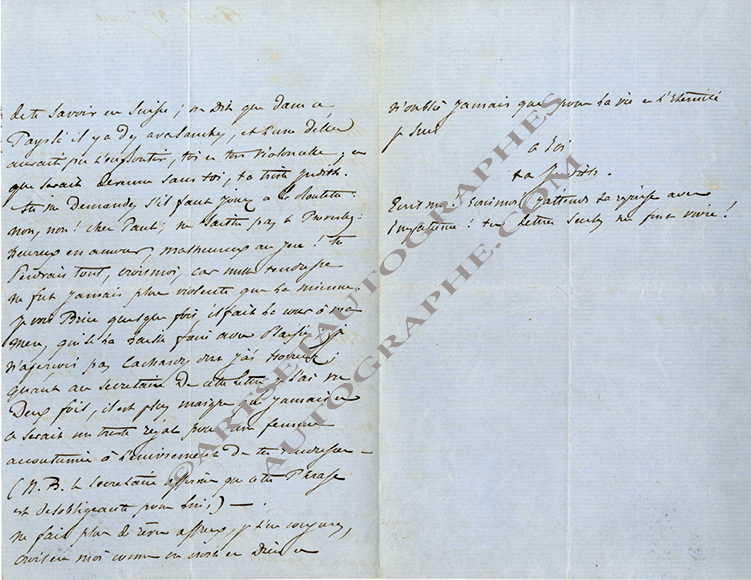 de te savoir en Suisse ; on dit que dans ce
Pays là il y a des avalanches, et l'une d'elles
aurait pu t'engloutir, toi et ton violoncelle ; et
que serait devenue sans toi, ta triste Judith.
Tu me demandes s'il faut jouer à la roulette :
non, non ! cher Paul ; ne sais-tu pas le Proverbe :
heureux en amour, malheureux au jeu ! tu
Perdrais tout, crois moi, car nulle tendresse
ne fut jamais plus violente que la mienne.
Je vois Brice quelque fois, il fait la cour à ma
mère, qui le laisse faire avec Plaisir ; je
n'aperçois pas Cachardy dont j'ai horreur ;
quant au secretaire de cette lettre, je l'ai vu
Deux fois, il est plus maigre que jamais et
ce serait un triste régal pour une femme
accoutumée à l'enivrement de ta tendresse —
(N. B. le Secretaire affirme que cette Phrase
est desobligeante pour lui ;) — .
ne fais plus de rêves affreux, je t'en conjure,
crois en moi comme on croit en Dieu et
n'oublie jamais que pour la vie et l'Eternité
je suis
à toi
ta Judith.
Ecris moi ! Ecris moi ! j'attends ta reponse avec
impatience ! tes lettres seules me font vivre !
©ARTS ET AUTOGRAPHES
AUTOGRAPHE.COM